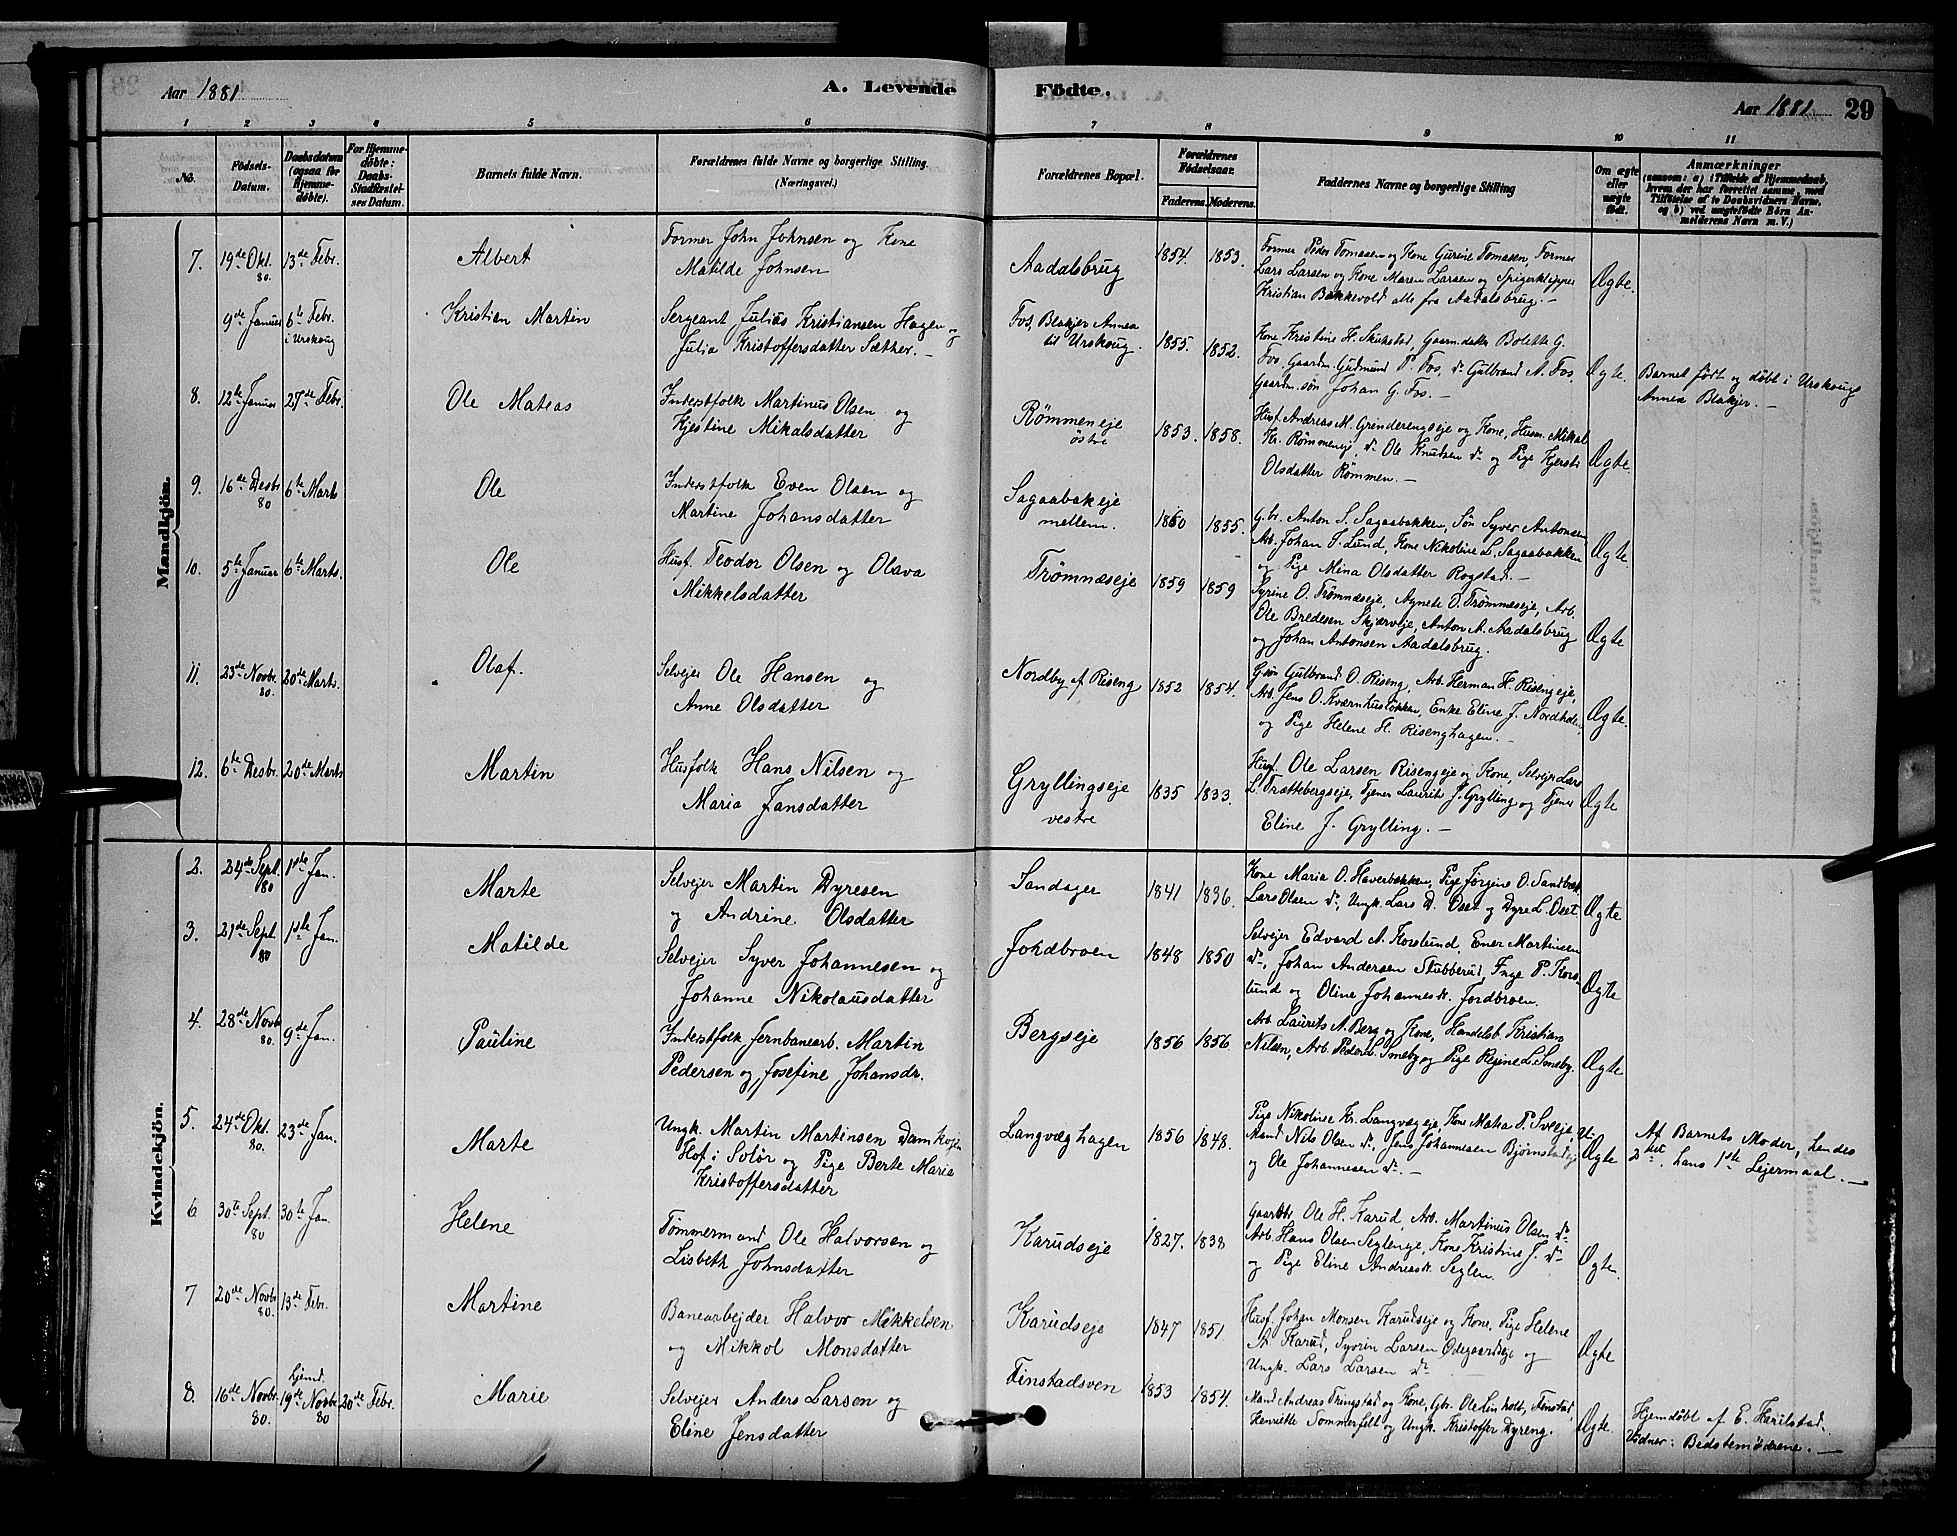 Aar 1881
A. Levende
Födte.
Aar 1881
29
1 2 3 4 5 6 7 8 9 10 11
No.
Födsels-Datum.
Daabsdatum (ogsaa for Hjemmedöbte).
For Hjemmedöbte: Daabs-Stadfæstelses Datum.
Barnets fulde Navn.
Forældrenes fulde Navne og borgerlige Stilling. (Næringsvei.)
Forældrenes Bopæl.
Forældrenes Födselsaar.
Faderens. Moderens.
Faddernes Navne og borgerlige Stilling
Om ægte eller uægte födt.
Anmærkninger
(saasom: a) i Tilfælde af Hjemmedaab, hvem der har forrettet samme, med Tilföielse af to Daabsvidners Navne, og b) ved uægtefödte Börn Anmelderens Navn m. V.)
Mandkjön.
7. 19de Okt. 80. 13de Febr. Albert
Former John Johnsen og Kone
Matilde Johnsen
Aadalsbrug 1854. 1853.
Former Peder Tomasen og Kone Gurine Tomasen Former
Lars Larsen og Kone Maren Larsen og Spigerklipper
Kristian Bakkevold alle fra Aadalsbrug. —
Ægte.
9de Januar 6te Febr. i Urskoug Kristian Martin
Sergeant Julius Kristiansen Hagen og
Julia Kristoffersdatter Sæther. —
Fos, Blakjer Annex
til Urskoug. 1855. 1852.
Kone Kristine H. Gaarm.datter Bolette G.
Fos, Gaardm. Gudmund P. Fos, do Gulbrand A. Fos,
Gaardm.søn Johan G. Fos. —
Ægte.
Barnet født og døbt i Urskougs
Annex Blakjer. —
8. 12te Januar 27de Febr. Ole Matias
Inderstfolk Martinus Olsen og
Kjestine Mikalsdatter
Rømmeneje
østre 1853. 1858.
Husf. Andreas M. Grinderengseje og Kone, Husm. Mikal
Kr. Rømmenej, do Ole Knudsen do og Pige Kjersti
Olsdatter Rømmen. —
Ægte.
9. 16de Desbr 80 6te Marts Ole
Inderstfolk Even Olsen og
Martine Johansdatter
Sagaabakeje
mellem. 1860 1855.
G.br. Anton S. Sagaabakken, Søn Syver Antonsen
Arb. Johan J. Lund, Kone Nikoline L. Sagaabakken
og Pige Mina Olsdatter Rogstad. —
Ægte.
10. 5te Januar 6te Marts. Ole
Husf. Teodor Olsen og Olava
Mikkelsdatter
Trømnæseje 1859 1859
Syrine O. Trømnæseje, Agnete O. Trømnæseje, Arb.
Ole Bredesen Skjærveje, Anton A. Aadalsbrug
og Johan Antonsen Aadalsbrug.
Ægte
11. 23de Novbr. 80. 20de Marts. Olaf.
Selvejer Ole Hansen og
Anne Olsdatter
Nordby af Riseng 1852 1854.
G.søn Gulbrand O. Riseng, Arb. Herman H. Risengeje,
Arb. Jens O. Kværnhusløkken, Enke Eline J. Nordholen
og Pige Helene H. Risenghagen. —
Ægte.
12. 6te Desbr. 20de Marts Martin
Husfolk Hans Nilsen og
Maria Jansdatter
Gryllingseje
vestre 1835 1833.
Husf. Ole Larsen Risengeje og Kone, Selvejer Lars
L. Trættebergseje, Tjener Laurits J. Grylling og Tjener
Eline J. Grylling. —
Ægte
Kvindekjön.
2. 24de Sept. 80 1ste Jan. Marte
Selvejer Martin Dyresen
og Andrine Olsdatter
Sandager 1841 1836.
Kone Maria O. Haverbakken, Pige Jørgine O. Sandbæk
Lars Olsen do, Ungk. Lars D. Oset og Dyre L. Oset.
Ægte
3. 21de Sept. 80 1ste Jan. Matilde
Selvejer Syver Johannesen og
Johanne Nikolausdatter
Jordbroen 1848 1850
Selvejer Edvard A. Korslund, Ener Martinsen
do, Johan Andersen Stubberud, Inge P. Kors-
lund og Oline Johannesdr. Jordbroen.
Ægte
4. 28de Novbr 80. 9de Jan. Pauline
Inderstfolk Jernbanearb. Martin
Pedersen og Josefine Johansdr.
Bergseje 1856 1856
Arb. Laurits A. Berg og Kone, Handelsb. Kristian
Nilsen, Arb. Peder L. Smeby og Pige Regine L. Smeby.
Ægte
5. 24de Okt. 80. 23de Jan. Marte
Ungk. Martin Martinsen
Hof i Solør og Pige Berte Maria
Kristoffersdatter
Langvæghagen 1856 1848.
Pige Nikoline Kr. Langvægeje, Kone Matea P. Sveeje,
Mand Nils Olsen do, Jens Johannesen
og Ole Johannesen do. —
U-
Ægte
Af Barnets Moder, hendes
2det, hans 1ste Lejermaal. —
6 30te Sept. 80 30te Jan. Helene
Tømmermand Ole Halvorsen og
Lisbeth Johnsdatter
Karudseje 1827. 1838
Gaardbr Ole H. Karud, Arb. Martinus Olsen do
Arb. Hans Olsen Segleneje, Kone Kristine J. do
og Pige Eline Andreasdr. Seglen.
Ægte.
7 20de Novbr 80. 13de Febr. Martine
Banearbejder Halvor Mikkelsen
og Mikkol Monsdatter
Karudseje 1847 1851.
Husf. Johan Monsen Karudseje og Kone, Pige Helene
A. Karud, Syverin Larsen Ødegaardseje og
Ungk. Lars Larsen do
Ægte
8. 16de Novbr. 80. hjemd. 19de Novbr. 80 20de Febr. Marie
Selvejer Anders Larsen og
Eline Jensdatter
Finstadsven 1853 1854.
Mand Andreas Tringstad og Kone, Gbr. Ole Linholt, Finstad,
Henriette Sommerfelt og Ungk. Kristoffer Dyreng.
Ægte.
Hjemdøbt af E. Harilstad.
Vidner: Bedstemødrene. —